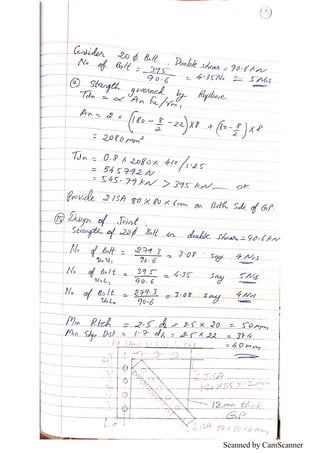 Consider 20 ϕ Bolt. Double shear = 90.6 kN
No of Bolt = 395 / 90.6 = 4.35 No ≅ 5 Nos
Strength governed by Rupture
Tdn = α An fu/γm1
An = 2 x (80 - 8/2 - 22) x 8 + (80 - 8/2) x 8
= 2080 mm²
Tdn = 0.8 x 2080 x 410 / 1.25
= 545792 N
= 545.79 kN > 395 kN OK
Provide 2 ISA 80 x 80 x 6mm on Both Side of GP.
Design of Joint
Strength of 20ϕ Bolt in double shear = 90.6 kN
No of Bolt = 279.3 / 90.6 = 3.08 say 4 Nos
No of Bolt = 395 / 90.6 = 4.35 say 5 Nos
No of Bolt = 279.3 / 90.6 = 3.08 say 4 Nos
Min Pitch = 2.5 d = 2.5 x 20 = 50 mm
Min Edge Dist = 1.7 dh = x 22 = 37.4
= 40 mm
2 ISA
x 115 x 12mm
12 mm thick
GP
2 ISA
Scanned by CamScanner